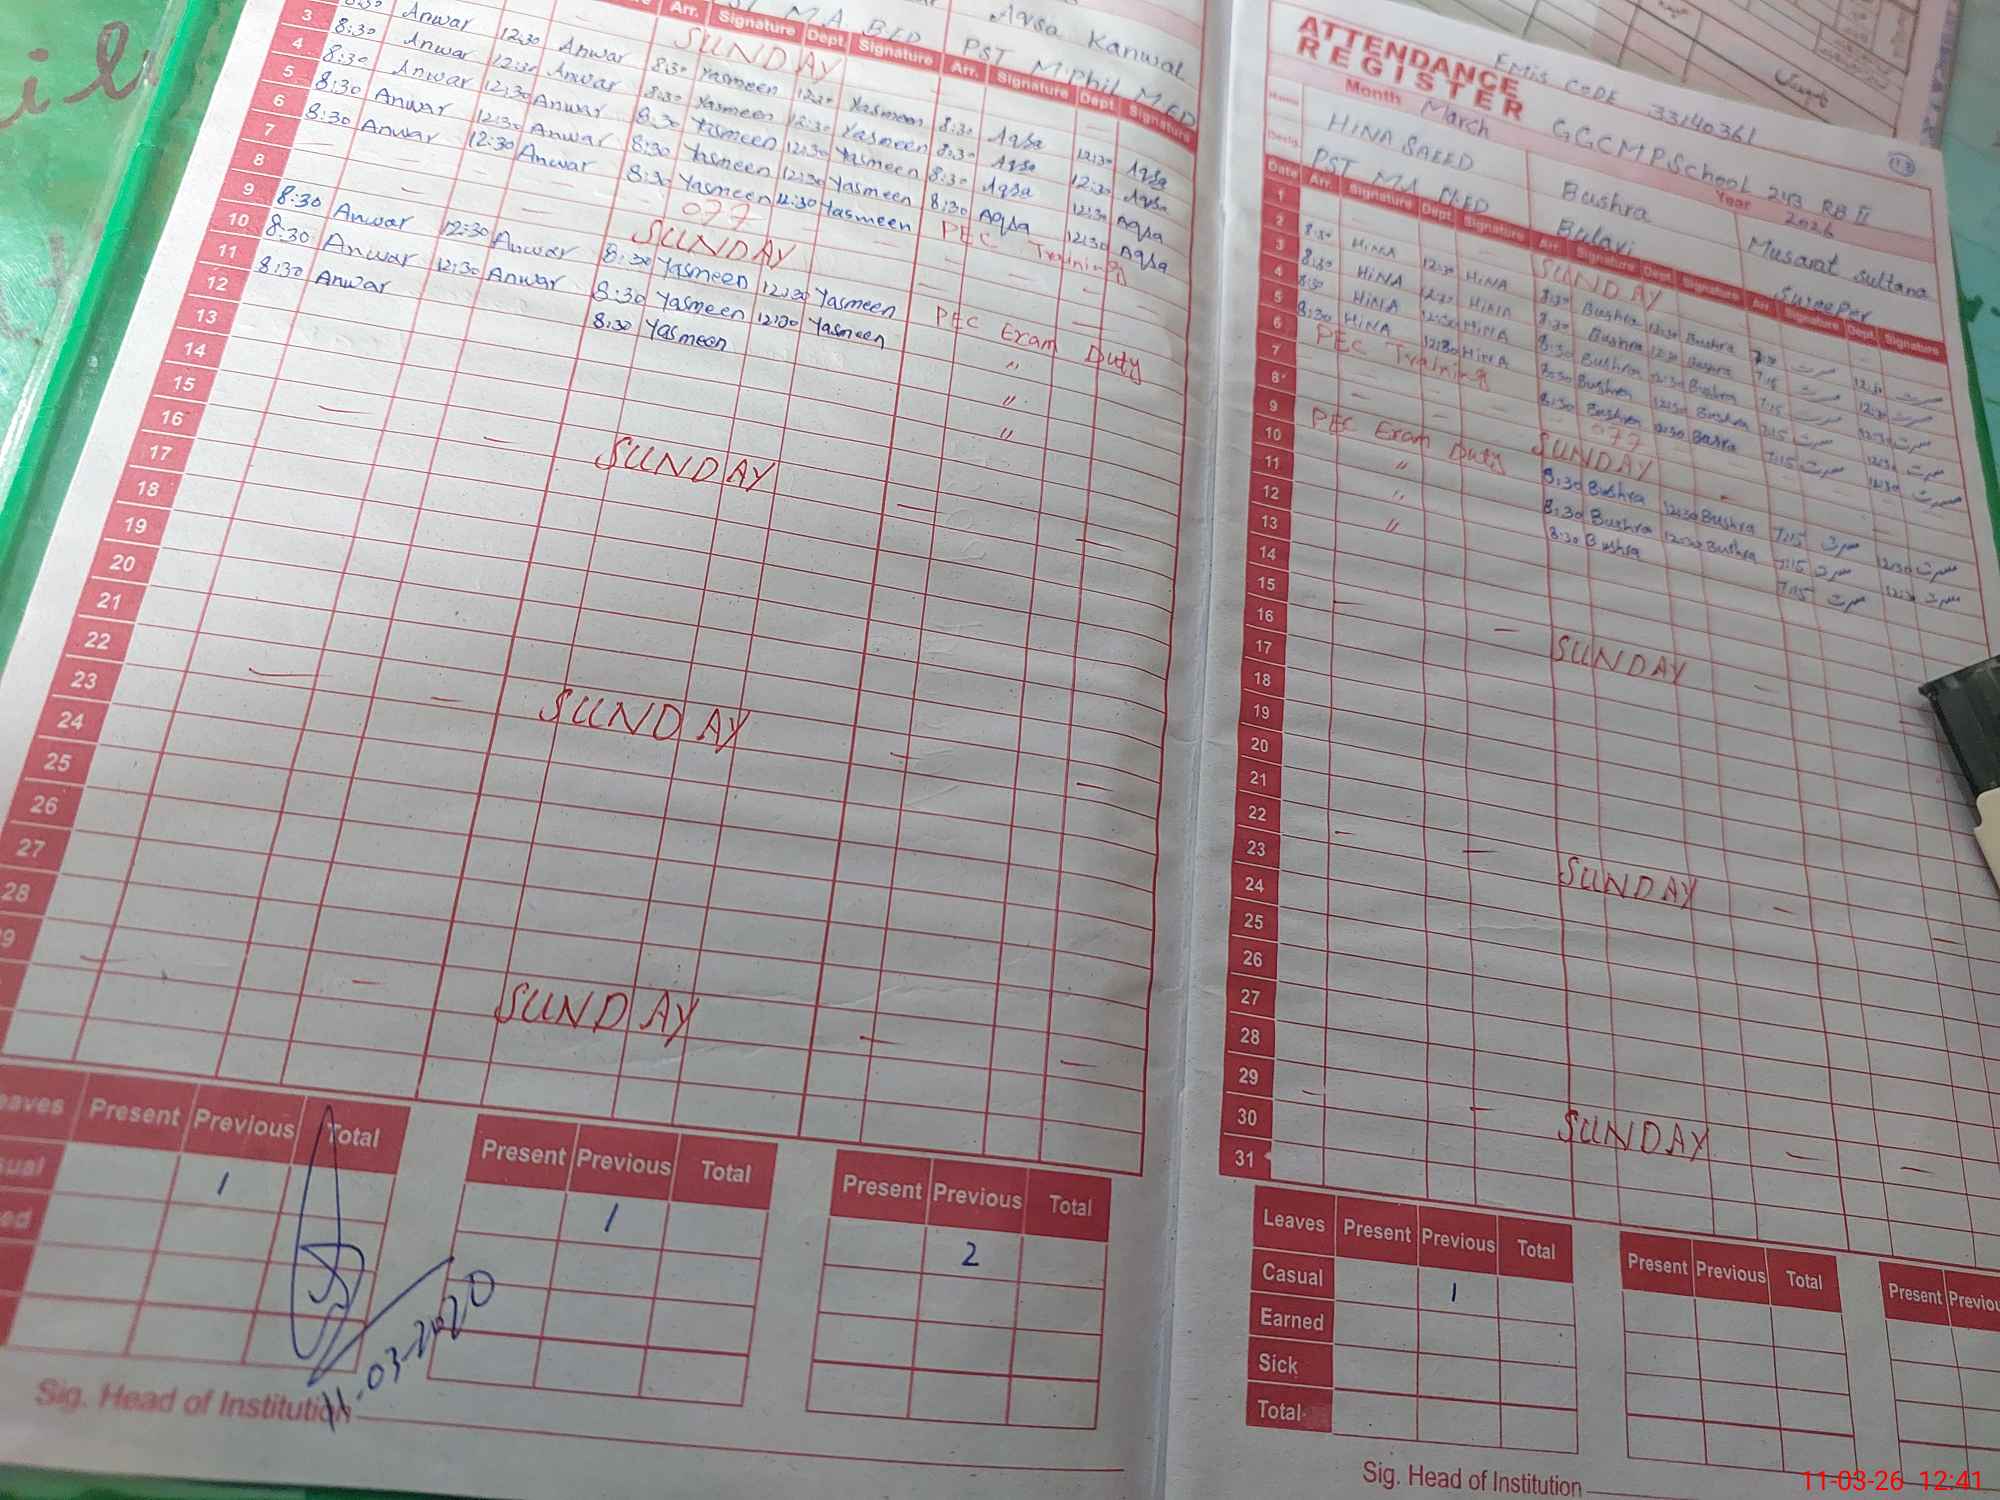 Aqsa Kanwal
M.A. B.ED PST M.Phil M.ED
Arr. Signature Dept. Signature Arr. Signature Dept. Signature
SUNDAY
3 8:30 Anwar 12:30 Anwar 8:30 Yasmeen 12:30 Yasmeen 8:30 Aqsa 12:30 Aqsa
4 8:30 Anwar 12:30 Anwar 8:30 Yasmeen 12:30 Yasmeen 8:30 Aqsa 12:30 Aqsa
5 8:30 Anwar 12:30 Anwar 8:30 Yasmeen 12:30 Yasmeen 8:30 Aqsa 12:30 Aqsa
6 8:30 Anwar 12:30 Anwar 8:30 Yasmeen 12:30 Yasmeen 8:30 Aqsa 12:30 Aqsa
7 8:30 Yasmeen 12:30 Yasmeen PEC Training
8 SUNDAY
9 8:30 Anwar 12:30 Anwar 8:30 Yasmeen 12:30 Yasmeen PEC Exam Duty
10 8:30 Anwar 12:30 Anwar 8:30 Yasmeen 12:30 Yasmeen "
11 8:30 Anwar 8:30 Yasmeen "
12 "
13
14
15
16 SUNDAY
17
18
19
20
21
22
23 SUNDAY
24
25
26
27
28
SUNDAY
Present Previous Total
1
Present Previous Total
1
Present Previous Total
2
11.03-2020
Sig. Head of Institution
ATTENDANCE
REGISTER
EMIS CODE 33140361
Month March GGCMPSchool 243 RB II
Year 2026
HINA SAEED Bushra Musarat Sultana
PST MA Bulavi Sweeper
Date Arr. Signature Dept. Signature Arr. Signature Dept. Signature Arr. Signature Dept. Signature
1 SUNDAY
2 8:30 HINA 12:30 HINA 8:30 Bushra 12:30 Bushra
3 8:30 HINA 12:30 HINA 8:30 Bushra 12:30 Bushra 7:15 مسرت 12:30 مسرت
4 8:30 HINA 12:30 HINA 8:30 Bushra 12:30 Bushra 7:15 مسرت 12:30 مسرت
5 8:30 HINA 12:30 HINA 8:30 Bushra 12:30 Bushra 7:15 مسرت 12:30 مسرت
6 PEC Training 8:30 Bushra 12:30 Bushra 7:15 مسرت 12:30 مسرت
7
8 SUNDAY
9 PEC Exam Duty 8:30 Bushra 12:30 Bushra 7:15 مسرت 12:30 مسرت
10 " 8:30 Bushra 12:30 Bushra 7:15 مسرت 12:30 مسرت
11 " 8:30 Bushra 7:15 مسرت
12 "
13
14
15 SUNDAY
16
17
18
19
20
21
22 SUNDAY
23
24
25
26
27
28
29 SUNDAY
30
31
Leaves Present Previous Total
Casual 1
Earned
Sick
Total
Present Previous Total
Present
Sig. Head of Institution
11-03-26 12:41